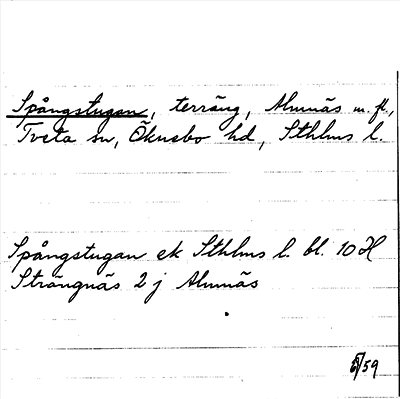 Spångstugan, terräng, Almnäs m. fl.,
Tveta sn, Öknebo hd, Sthlms l.
Spångstugan ek Sthlms l. bl. 10 H
Strängnäs 2 j Almnäs
/59